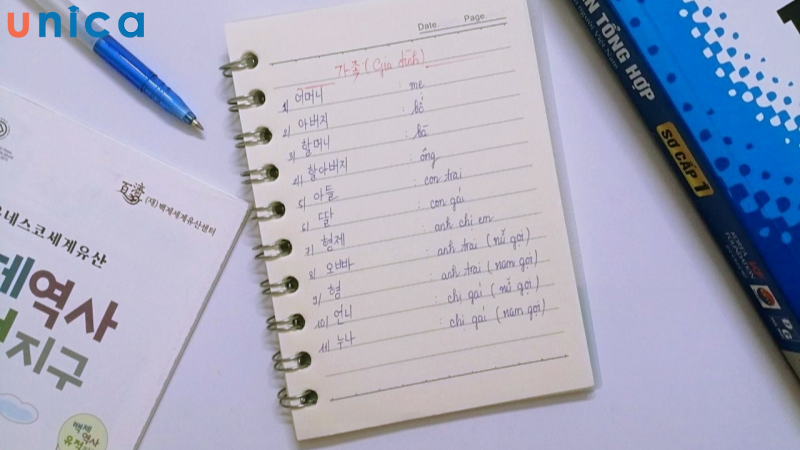 unica
Date. Page.
가족 (Gia đình)
1) 어머니 : mẹ
2) 아버지 : bố
3) 할머니 : bà
4) 할아버지 : ông
5) 아들 : con trai
6) 딸 : con gái
7) 형제 : anh chị em
8) 오빠 : anh trai (nữ gọi)
9) 형 : anh trai (nam gọi)
10) 언니 : chị gái (nữ gọi)
11) 누나 : chị gái (nam gọi)
(재)백제세계유산센터
네스코세계유산
제역사
지구
백제
역사
유적
N TỔNG HỢP
SƠ CẤP 1